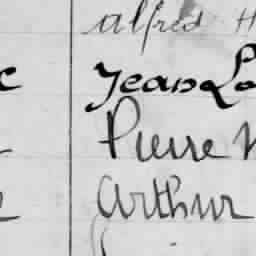 alfred H
Jean Lo
Pierre
Arthur